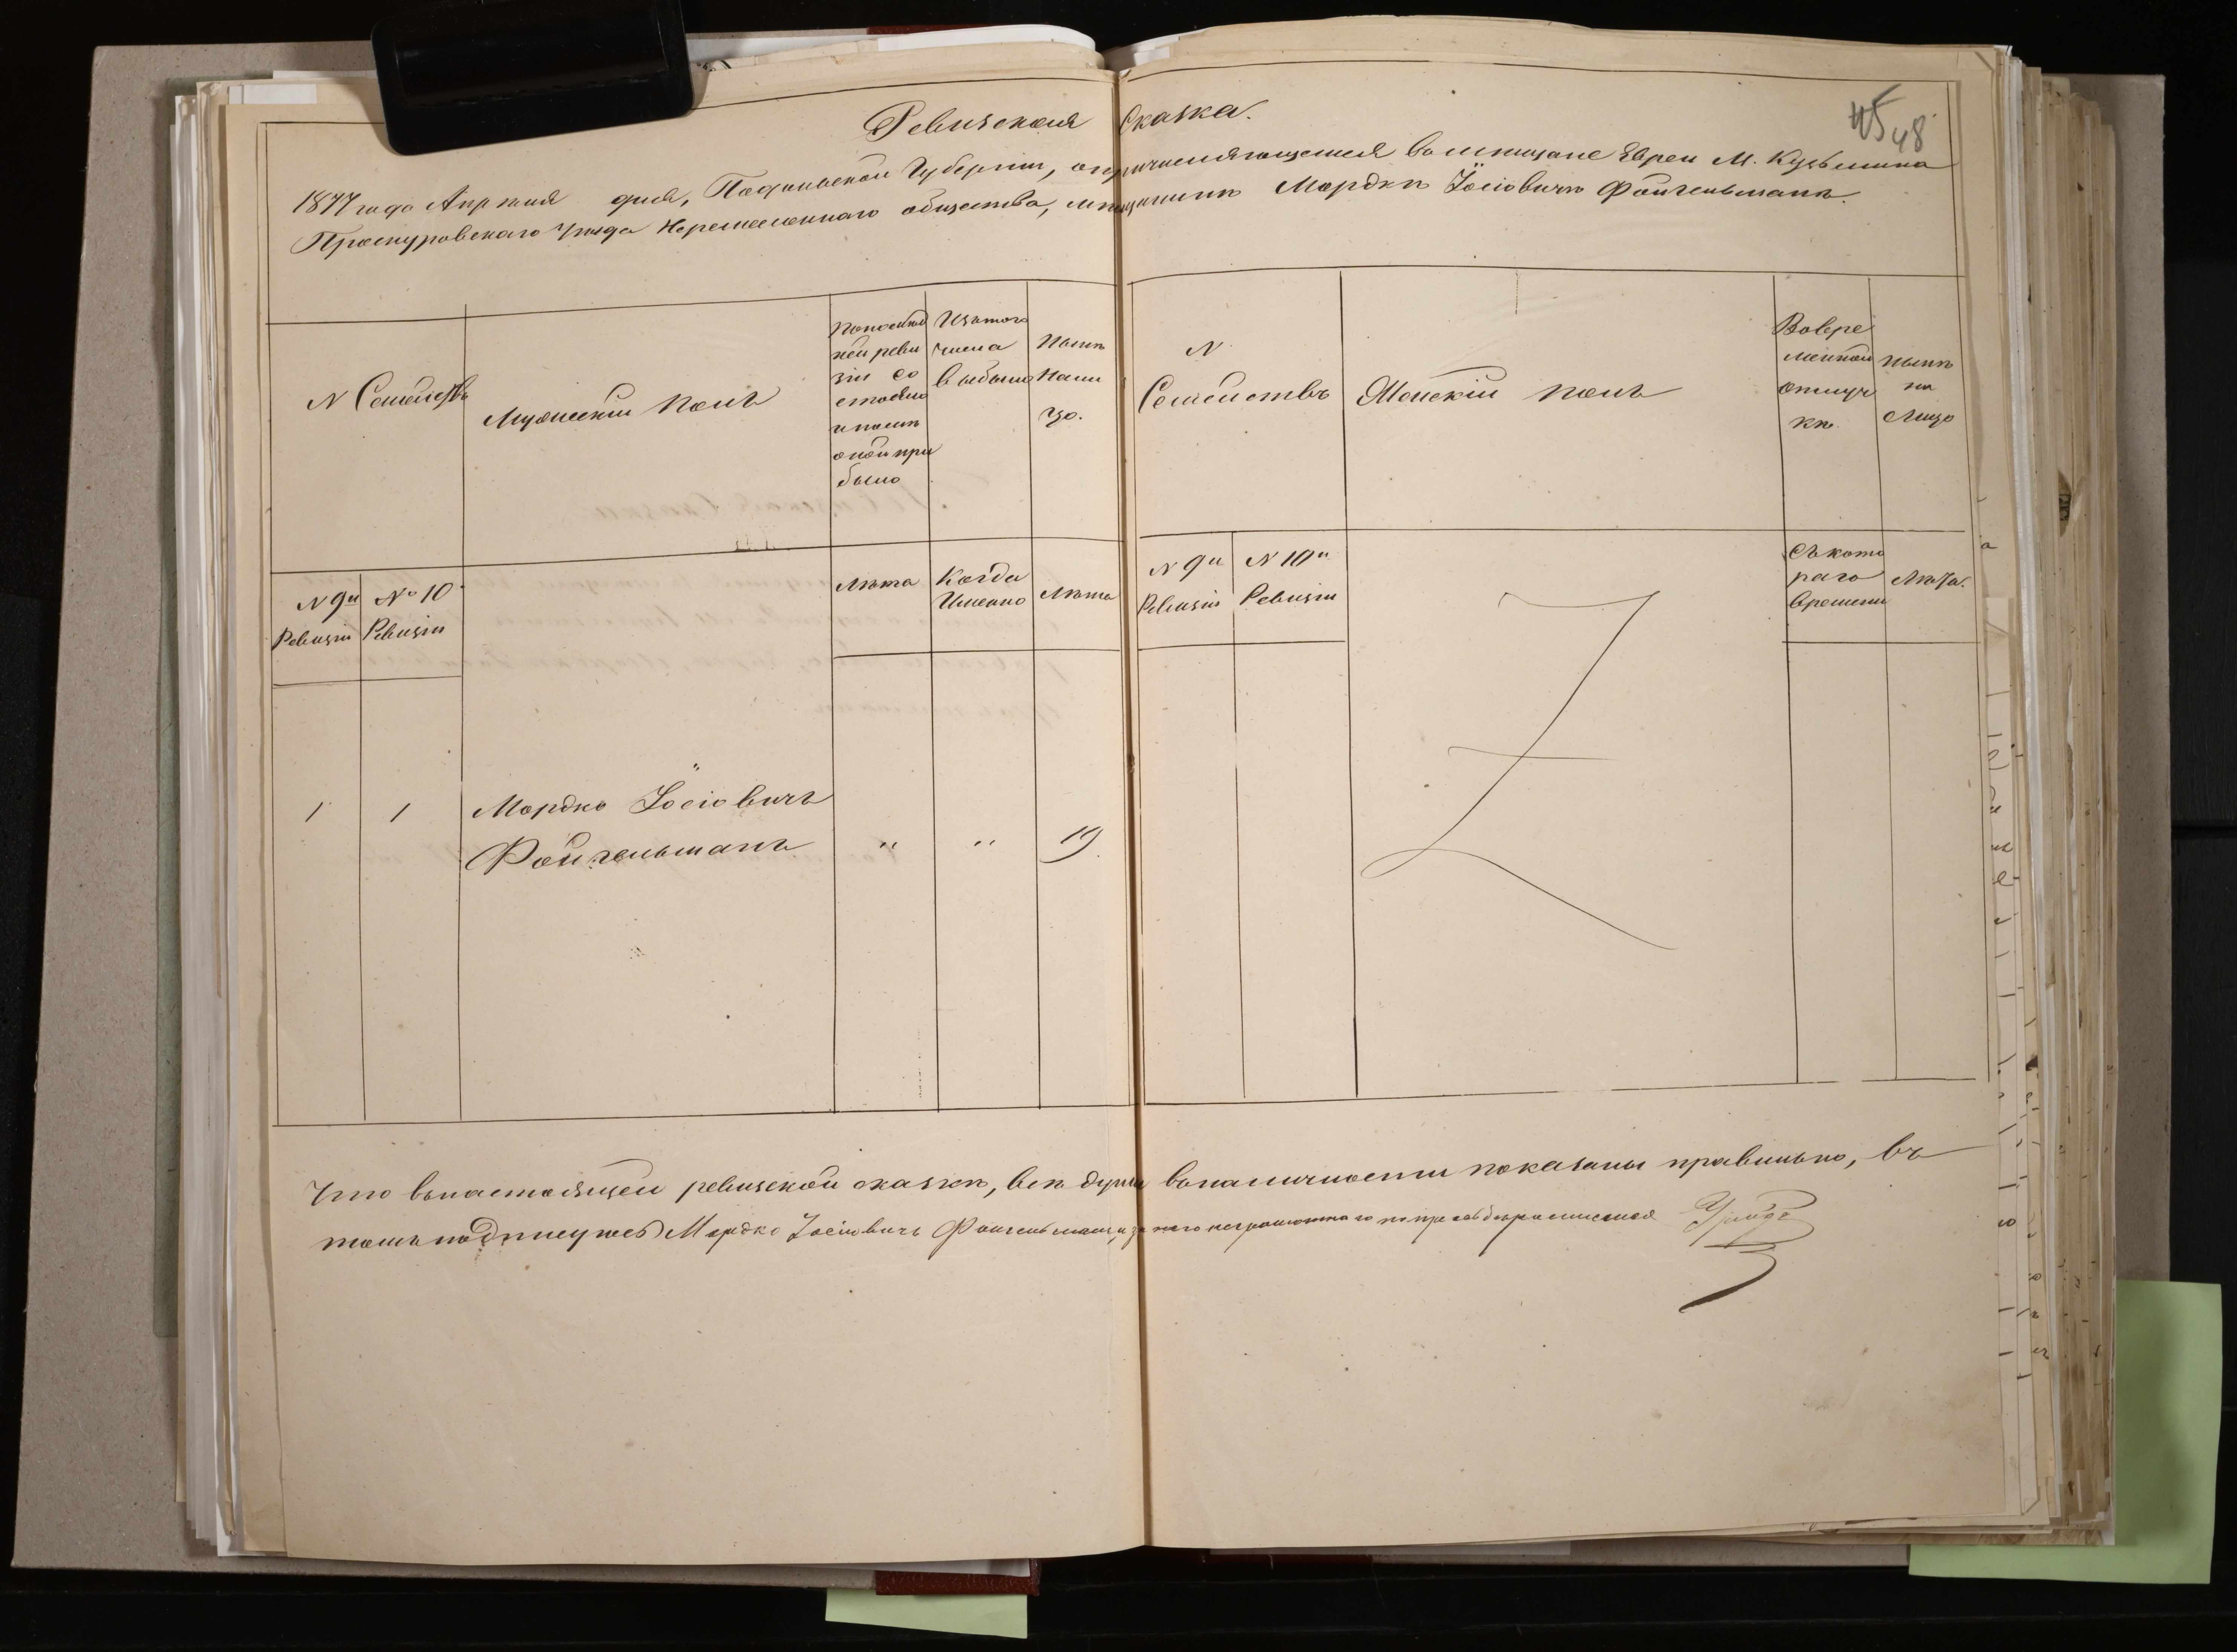 Ревизская Сказка.
45 48
1877 года Апреля дня, Подольской Губернии, о причисляющемся въ мещане Еврей М. Кузьмина
Проскуровскаго Уезда Неремесленнаго общества, мещанинъ Мордко Іосіовичъ Фойгельманъ.
N Семействъ
Мужескій полъ
По последней ревизіи состояло и после оной прибыло
Изъ того числа выбыло
Ныне на лицо.
N Семействъ
Женскій полъ
Во временной отлучке
Ныне на лицо
N 9й Ревизіи
№ 10 Ревизіи
Лета
Когда Именно
Лета
N 9й Ревизіи
N 10й Ревизіи
Съ котораго времени
Лета.
1 1 Мордко Іосіовичъ
Фойгельманъ " " 19.
Что въ настоящей ревизской сказке, все души въ наличности показаны правильно, въ
томъ подписуюсь Мордко Іосіовичъ Фойгельманъ, а за него неграмотнаго по просьбе росписался